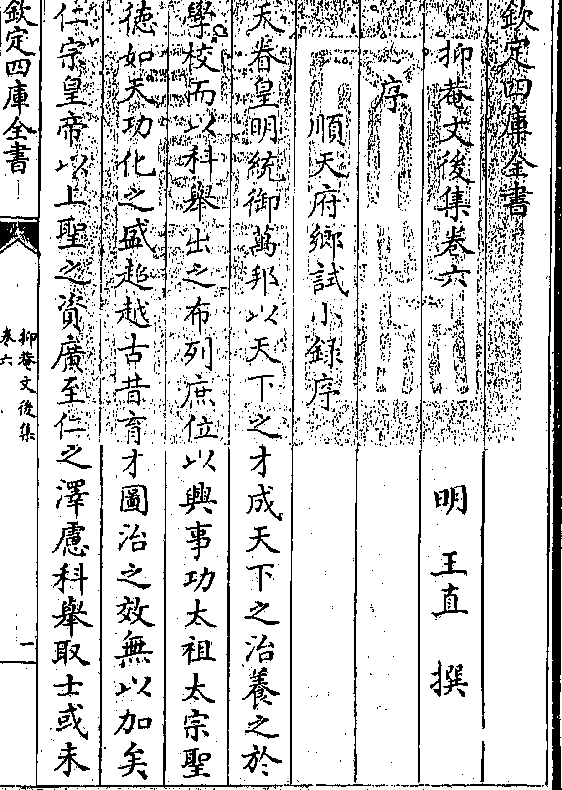 欽定四庫全書
抑菴文後集卷六
明　王直　撰
序
順天府鄉試小録序
天眷皇明統御萬邦以天下之才成天下之治養之於
學校而以科舉出之布列庶位以興事功太祖太宗聖
徳如天功化之盛超越古昔育才圖治之效無以加矣
仁宗皇帝以上聖之資廣至仁之澤慮科舉取士或未
欽定四庫全書
抑菴文後集
卷六
一